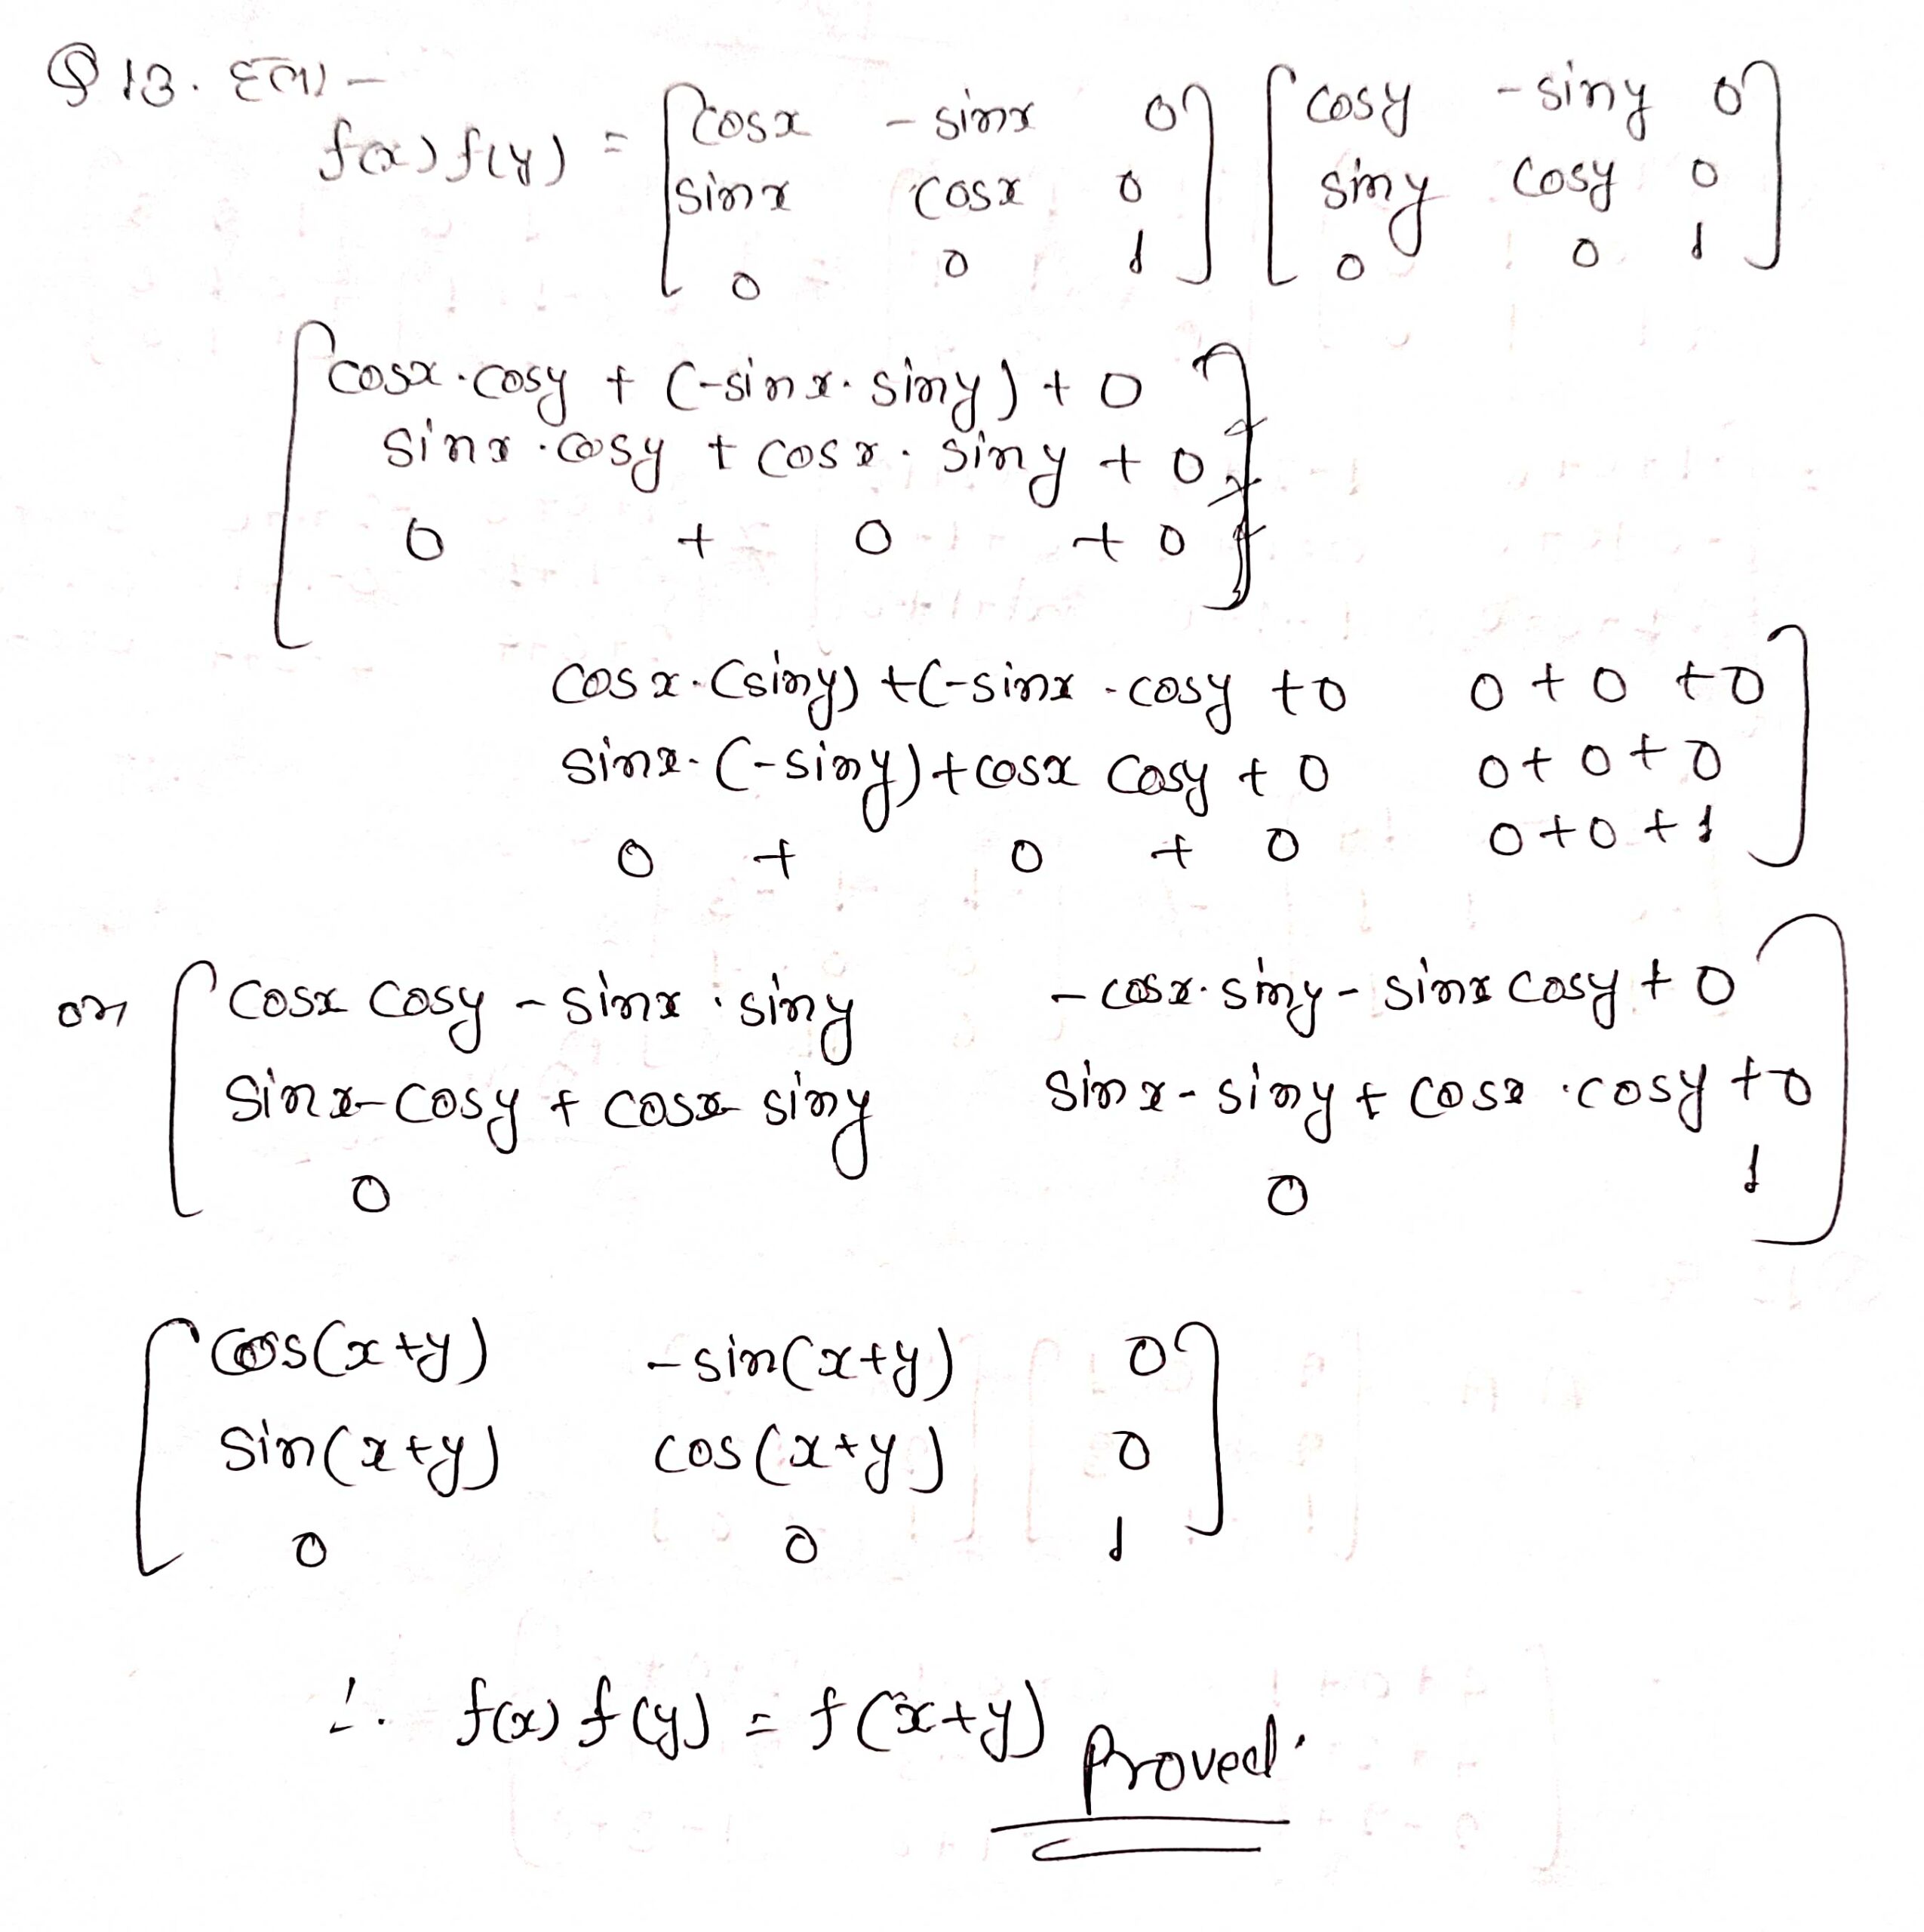 Q 13. हल -
f(x) f(y) = [cosx - sinx 0] [cosy - siny 0]
[sinx cosx 0] [siny cosy 0]
[0 0 1] [0 0 1]
[cosx . cosy + (-sinx . siny) + 0]
sinx . cosy + cosx . siny + 0
0 + 0 + 0
cosx . (siny) + (-sinx . cosy + 0 0 + 0 + 0]
sinx . (-siny) + cosx cosy + 0 0 + 0 + 0
0 + 0 + 0 0 + 0 + 1
or [cosx cosy - sinx . siny - cosx . siny - sinx cosy + 0]
sinx - cosy + cosx siny sinx - siny + cosx . cosy + 0
0 0 1
[cos(x+y) - sin(x+y) 0]
sin(x+y) cos(x+y) 0
0 0 1
∴ f(x) f(y) = f(x+y) Proved.